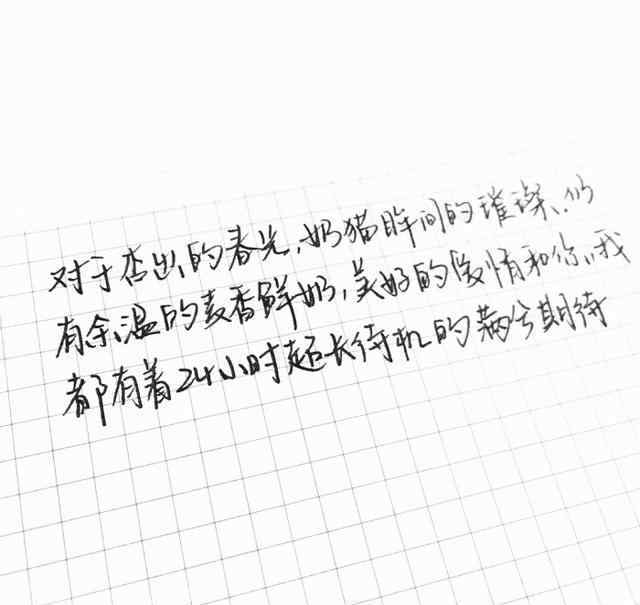 对于杏出的春光,奶猫眸间的璀璨、仍
有余温的麦香鲜奶,美好的爱情和你,我
都有着24小时超长待机的满兮期待